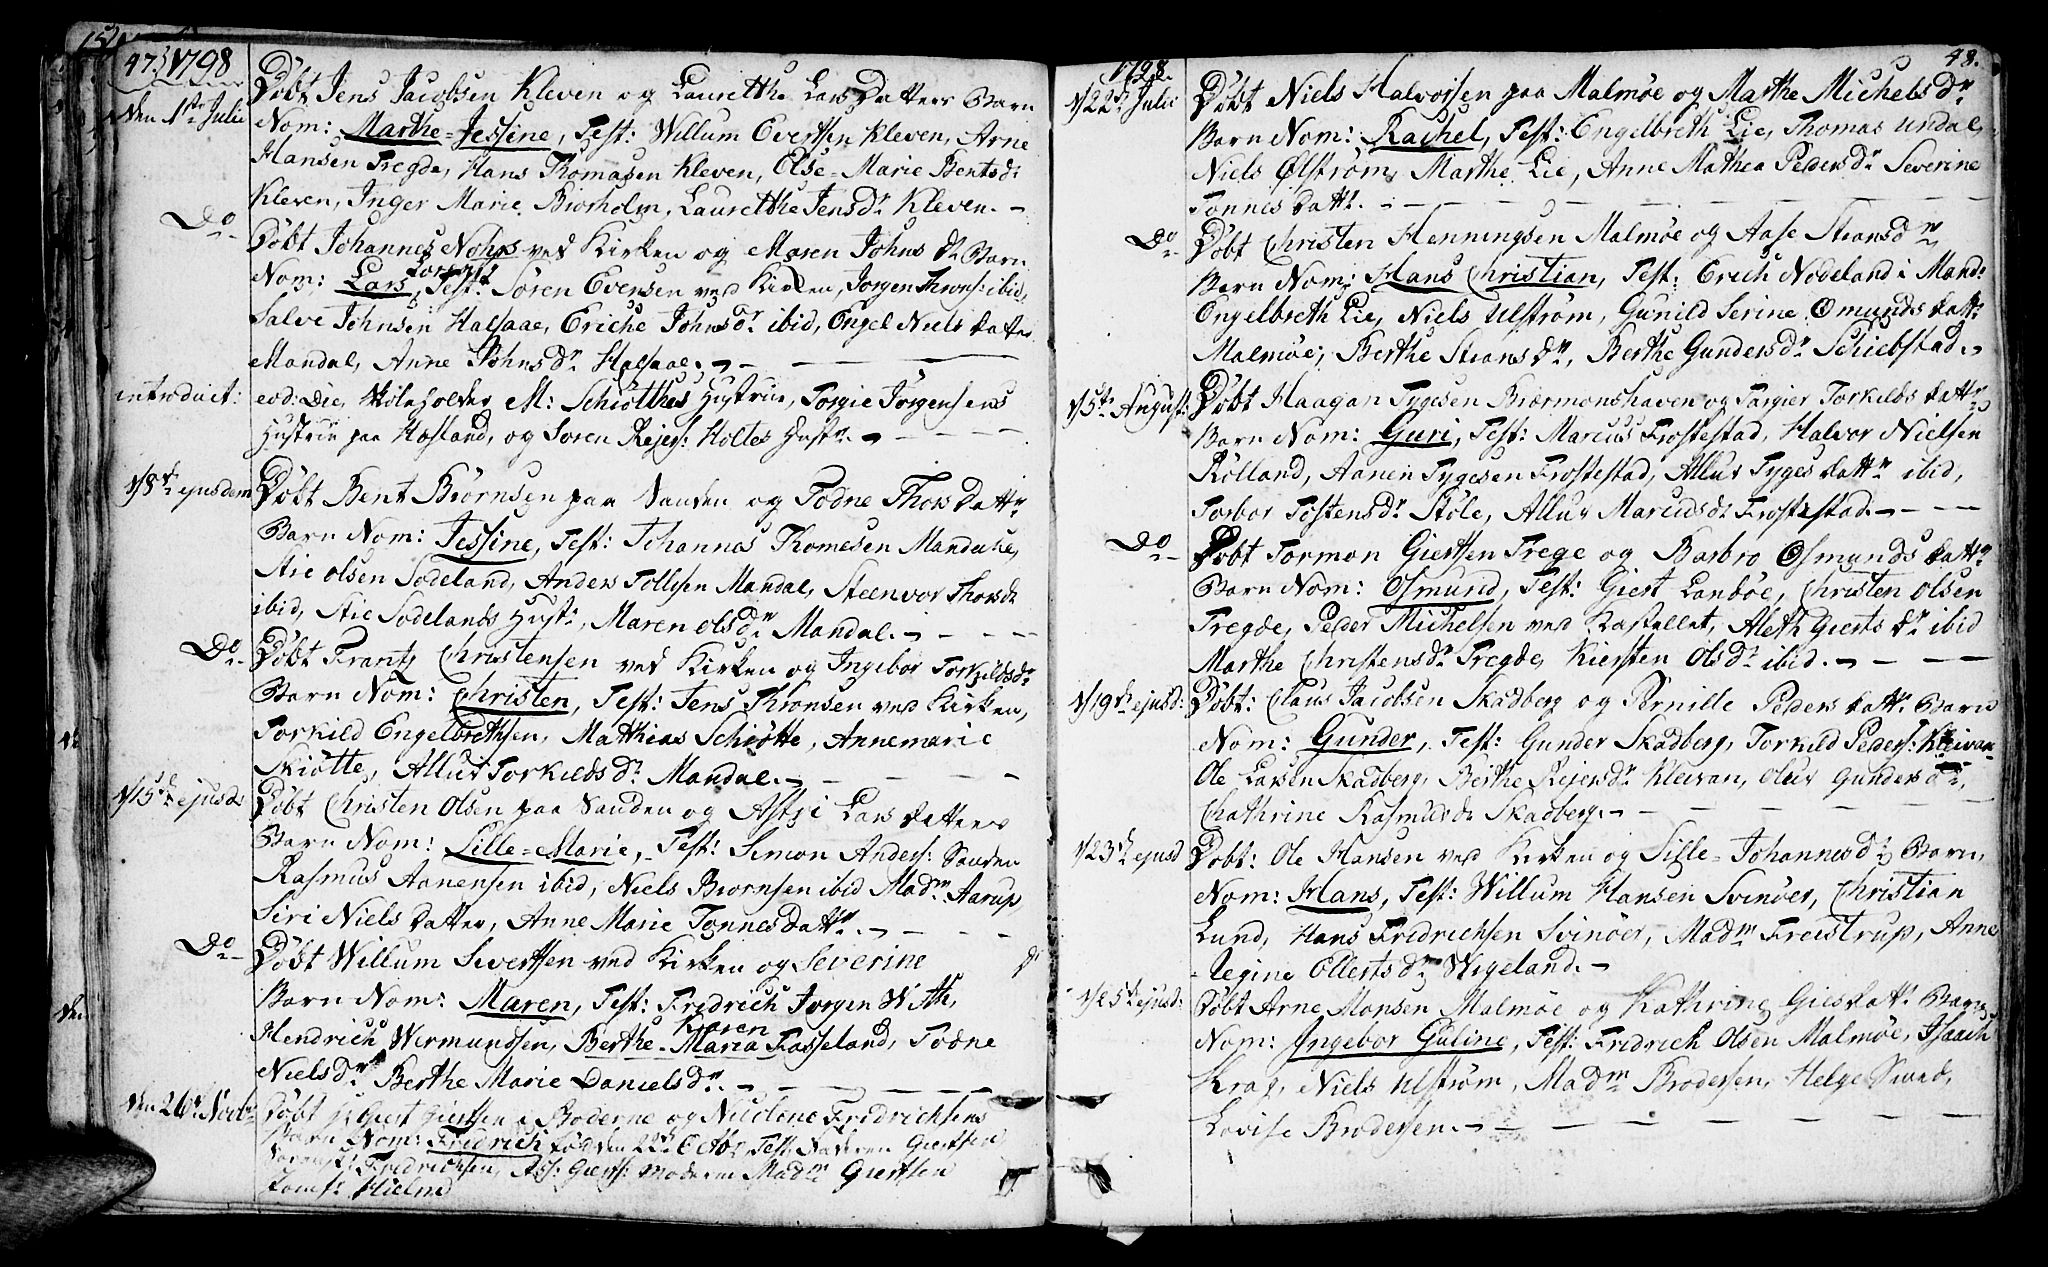 47. 1798
Den 1ste Julii
Døbt Jens Jacobsen Kleven og Laurethe LarsDatters Barn
Nom: Marthe=Jessine, Test: Willum Evertsen Kleven, Arne
Hansen Tregde, Hans Thomasen Kleven, Else-Marie Bentsdr
Kleven, Inger Marie Biørholm, Laurethe Jensdr Kleven.
Do
Døbt Johannes Nohrs ved Kirken og Maren Johns dr Barn
Nom: Lars, Test: Søren Evensen ved Kirken, Jørgen Throns: ibid,
Salve Johnsen Halsaae, Eriche Johnsdr ibid, Engel Niels datter
Mandal, Anne Johnsdr Halsaae.
introduct:
eod: Die, Skoleholder M: Schiötthes Hustrue, Torgie Jörgensens
Hustrue paa Hosland, og Soren Rejers: Holtes Hustr.
d/8de ejusdem
Døbt Bent Biørnsen paa Sanden og Todne Thorsdattr
Barn Nom: Jessine, Test: Johannes Thomesen Mandahe,
Stie olsen Sodeland, Anders Tollisen Mandal, Steenvor Thorsdr
ibid, Stie Sodelands Hust:, Maren olsdr Mandal.
Do
Døbt Frantz Christensen ved Kirken og Ingebor Torkildsdr
Barn Nom: Christen, Test: Jens Thronsen ved Kirken,
Torkild Engelbrethsen, Matthias Schiøtte, Annemarie
Skiøtte, Allut Torkildsdr Mandal.
d/15de ejusd:
Døbt Christen Olsen paa Sanden og Astri Lars datters
Barn Nom: Lille=Marie, Test: Simon Anders: Sanden
Rasmus Aanensen ibid, Niels Biornsen ibid Madm Aarup,
Siri Niels datter, Anne Marie Tønnesdattr.
Do
Døbt Willum Sivertsen ved Kirken og Severine dr
Barn Nom: Maren, Test: Fredrich Jørgen With,
Karen
Hendrich Wermundsen, Berthe-Maria Fasseland, Todne
Nielsdr Berthe Marie Danielsdr.
Den 26de Novbr
Døbt Giert Giertsen i Boderne og Nicoline Fredrichsens
Barn Nom: Fredrich født den 22de Octbr, Test: Faderen Giertsen
Fredrichsen, Ass: Gierts: Moderen Madm Giertsen
Jomfr Hielm
1798. 48.
d/22de Julii
Døbt Niels Halvorsen paa Malmøe og Marthe Michelsdr
Barn Nom: Rachel, Test: Engelbreth Lie, Thomas Undal,
Niels Ølstrøm, Marthe Lie, Anne Mathea Pedersdr Severine
Tønnesdattr.
Do
Døbt Christen Henningsen Malmøe og Aase Steansdr
Barn Nom: Hans Christian, Test: Erich Nodeland i Mand:
Engelbreth Lie, Niels Ulstrøm, Gunild Serine Omundsdattr
Malmøe, Berthe Steansdr, Berthe Gundersdr Schiebstad.
d/5te August:
Døbt Haagan Tygesen Biørmonshaven og Targier Torkilds datter
Barn Nom: Guri, Test: Marcus Frostestad, Halvor Nielsen
Rölland, Aanen Tygesen Frostestad, Allut Tyges dattr ibid,
Torbor Tostensdr Støle, Allur Marcusdr Frostestad.
Do
Døbt Tormon Giertsen Trege og Barbro Osmunds dattr
Barn Nom: Osmund, Test: Giert Landøe, Christen olsen
Tregde, Peder Michelsen ved Kastellet, Aleth Gierts dr ibid
Marthe Christensdr Tregde, Kiersten Olsdr ibid.
d/19de ejusd:
Døbt: Claus Jacobsen Skadberg og Pernille Peders dattr Barn
Nom: Gunder, Test: Gunder Skadberg, Torkild Peders: Kleivan
Ole Larsen Skadberg, Berthe Rejersdr Kleivan, Olur Gundersdr,
Chathrine Rasmusdr Skadberg.
d/23de ejusd
Døbt: Ole Hansen ved Kirken og Sille-Johannesdr Barn,
Nom: Hans, Test: Willum Hansen Svinøer, Christian
Lund, Hans Fredrichsen Svinøer, Madm Freistrup, Anne
Regine Ellertsdr Wigeland.
d/25de ejusd:
Døbt Arne Monsen Malmøe og Kathrine Giesdattr Barn
Nom: Ingebor Guline, Test: Fredrich Olsen Malmøe, Isaach
Krag, Niels Ulstrøm, Madm Brodersen, Helge Svend,
Lovise Brodersen.